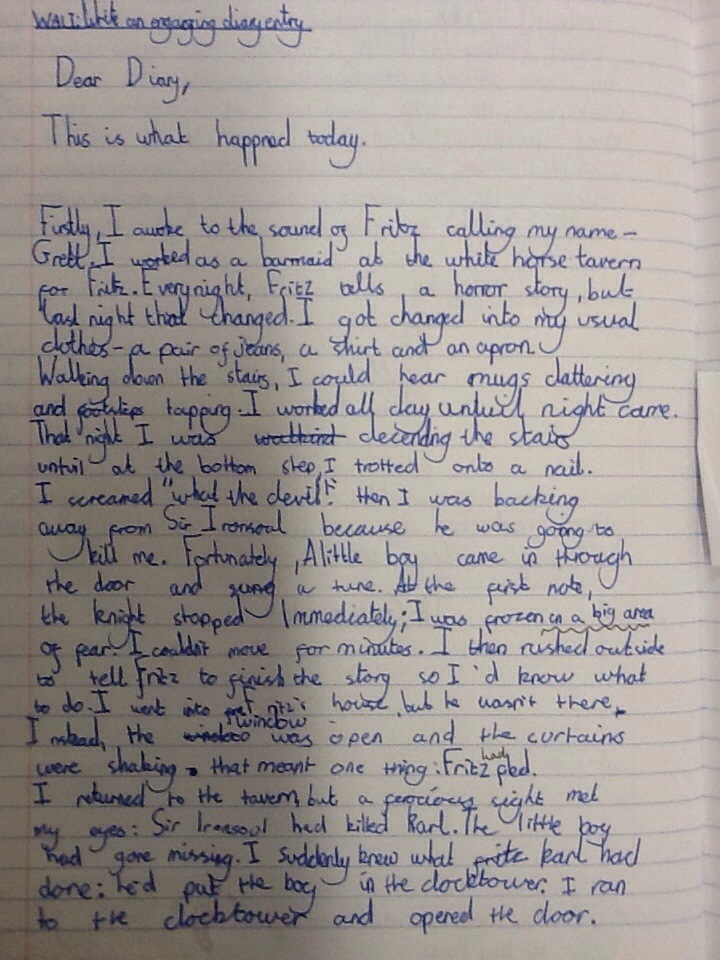 WALT: Write an engaging diary entry
Dear Diary,
This is what happned today.
Firstly, I awoke to the sound of Fritz calling my name –
Gretl. I worked as a barmaid at the white horse tavern
for Fritz. Every night, Fritz tells a horror story, but
last night that changed. I got changed into my usual
clothes – a pair of jeans, a shirt and an apron.
Walking down the stairs, I could hear mugs clattering
and footsteps tapping. I worked all day untuil night came.
That night I was decending the stairs
untuil at the bottom step, I trotted onto a nail.
I screamed "what the devil!" then I was backing
away from Sir Ironsoul because he was going to
kill me. Fortunately, A little boy came in through
the door and sung a tune. At the first note,
the knight stopped Immediately; I was frozen in a big area
of fear. I couldn't move for minutes. I then rushed outside
to tell Fritz to finish the story so I'd know what
to do. I went into Fritz's house, but he wasn't there,
Instead, the window was open and the curtains
were shaking. that meant one thing: Fritz had fled.
I returned to the tavern, but a ferocious sight met
my eyes: Sir Ironsoul had killed Karl. The little boy
had gone missing. I suddenly knew what Karl had
done: he'd put the boy in the clocktower. I ran
to the clocktower and opened the door.